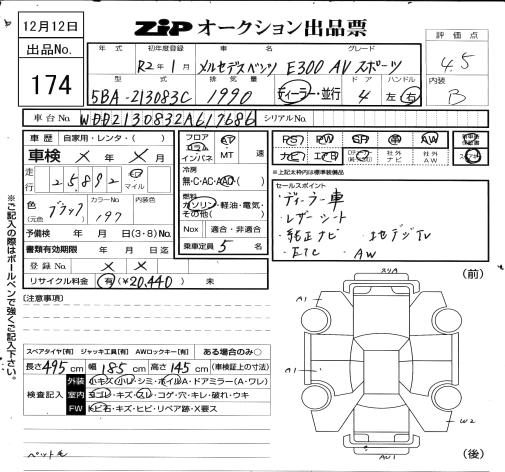 12月12日
出品No.
174
ZIP オークション出品票
評価点
4.5
内装
B
年式 初年度登録 車名 グレード
R2年1月 メルセデスベンツ E300 AV スポーツ
型式 排気量 ドア ハンドル
5BA-213083C 1990 ディーラー・並行 4 左 右
車台No. WDD2130832A617686 シリアルNo.
車歴 自家用・レンタ・( )
車検 × 年 × 月
走行 25,892 km マイル
色 (元色) ブラック カラーNo. 197 内装色
予備検 年 月 日(3・8)No.
書類有効期限 年 月 日迄
登録No. × ×
リサイクル料金 有(¥20,440) 未
フロア コラム インパネ AT MT 速
冷房 無・C・AC・AAC
燃料 ガソリン・軽油・電気・その他( )
Nox 適合・非適合
乗車定員 5 名
PS PW SR 革 AW
ナビ エアB 社外ナビ 社外AW
※上記太枠内は標準装備品
セールスポイント
・ディーラー車
・レザーシート
・純正ナビ ・地デジTV
・ETC ・AW
(注意事項)
スペアタイヤ[有] ジャッキ工具[有] AWロックキー[有] ある場合のみ○
長さ 495 cm 幅 185 cm 高さ 145 cm (車検証上の寸法)
検査記入
外装 小キズ・小U・シミ・ホイルA・ドアミラー(A・ワレ)
室内 ヨゴレ・キズ・スレ・コゲ・穴・キレ・破れ・ウキ
FW トビ石・キズ・ヒビ・リペア跡・X要ス
ペット毛
※ご記入の際はボールペンで強くご記入下さい。
(前)
スリA
A1
A1
W2
AW1
(後)